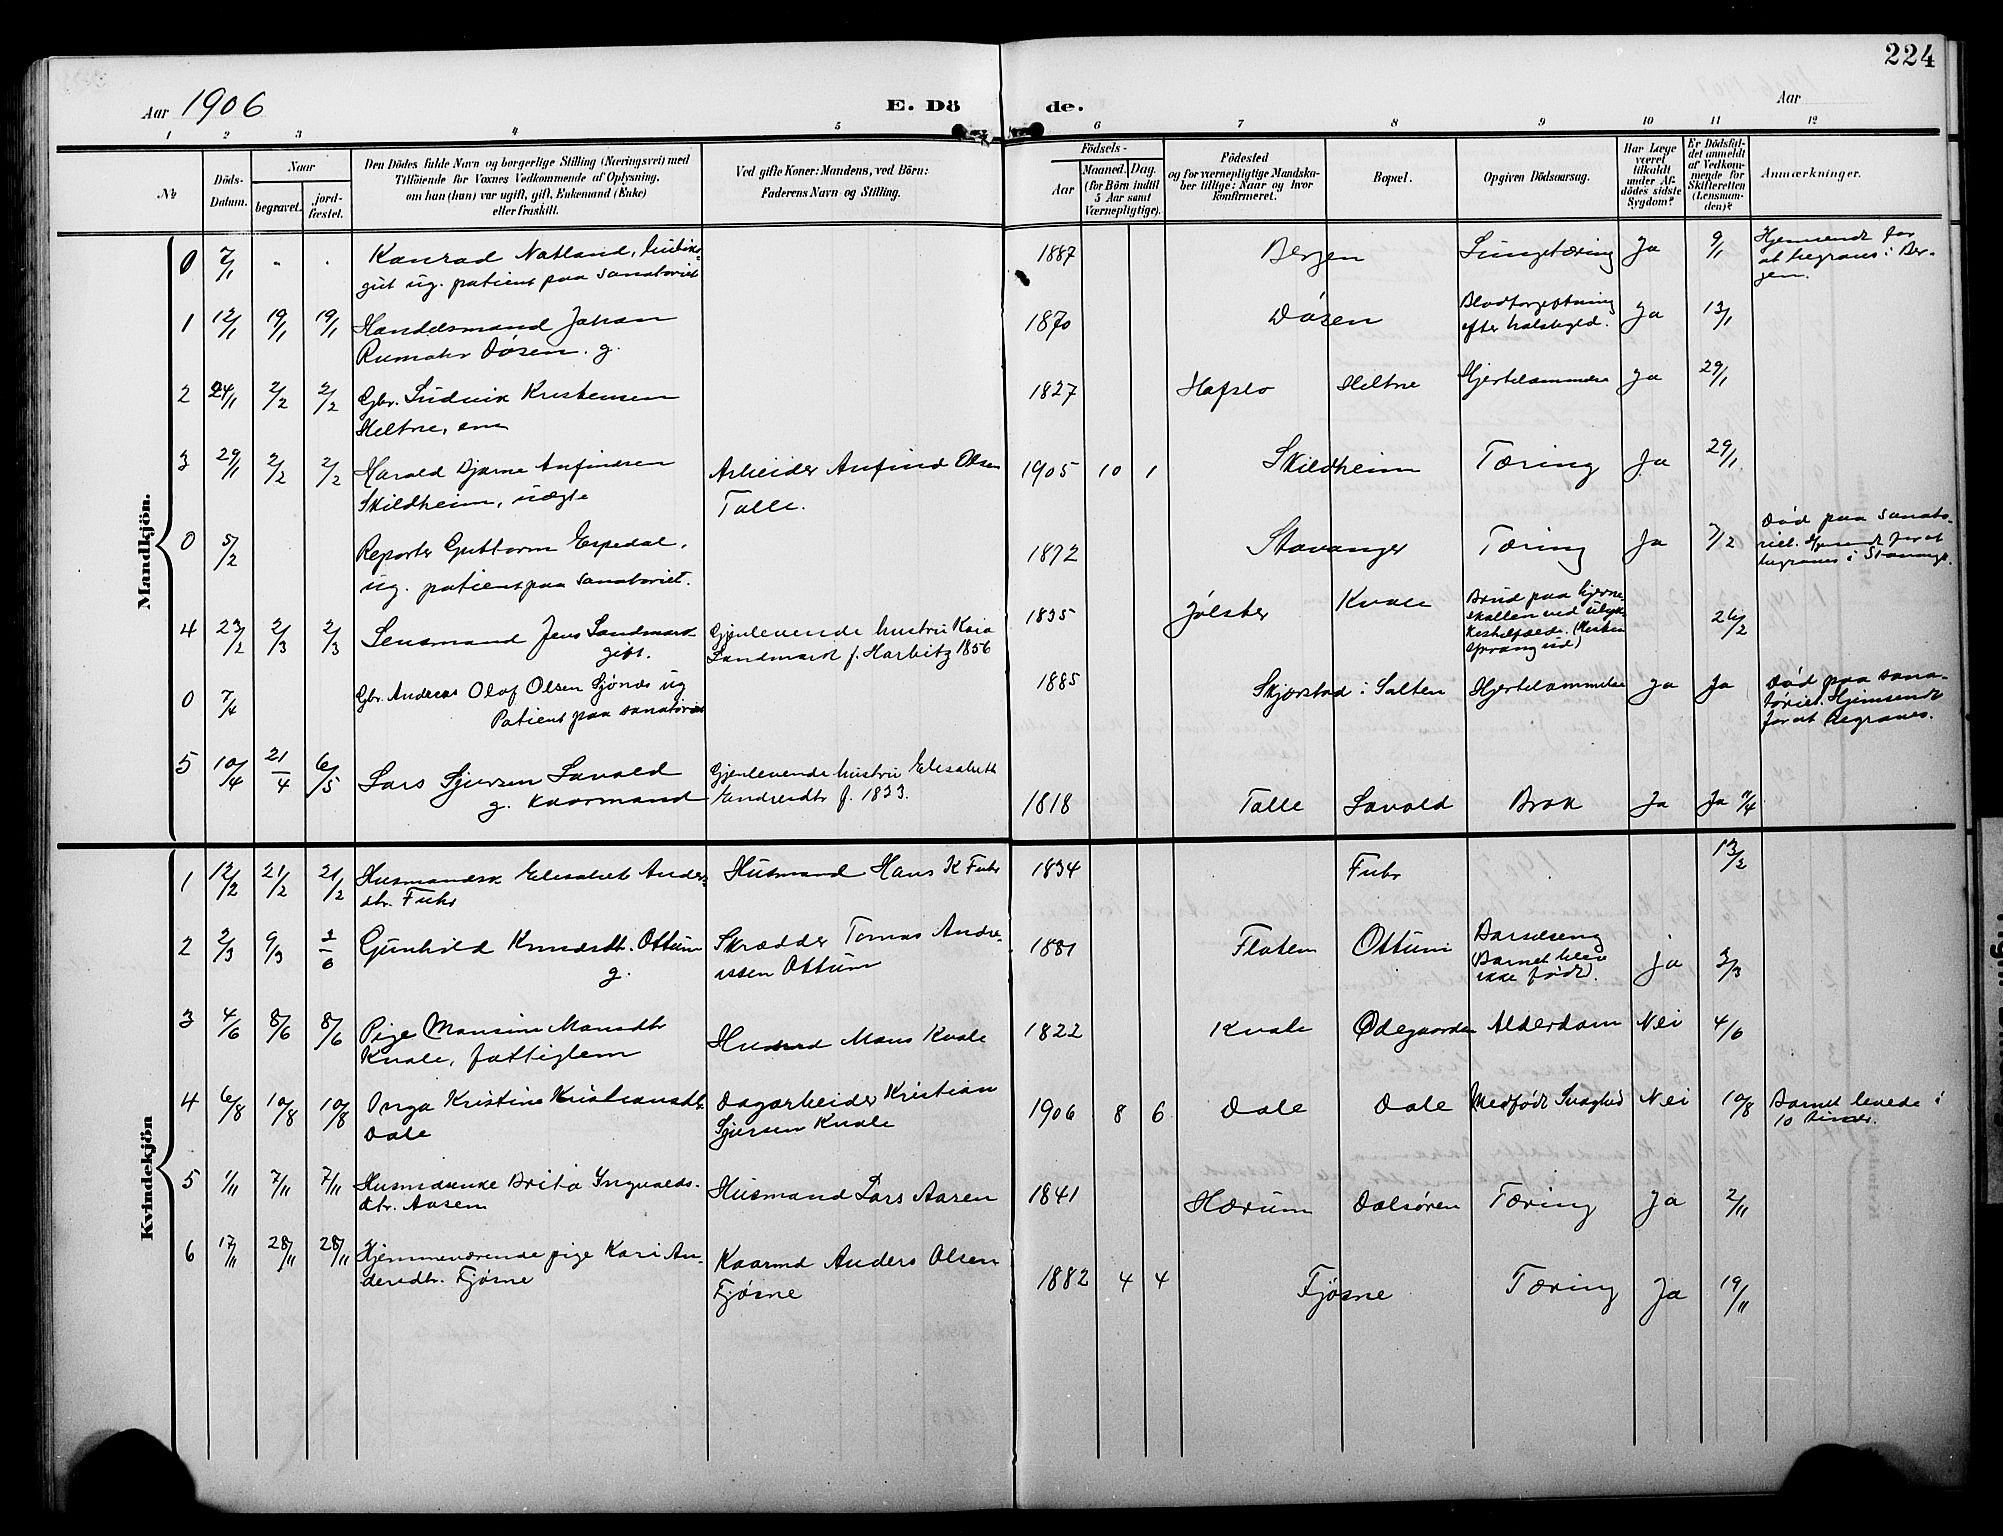 224
Aar 1906
E. Dö de.
Aar
1 2 3 4 5 6 7 8 9 10 11 12
№
Döds-Datum.
Naar
begravet.
jord-fæstet.
Den Dödes fulde Navn og borgerlige Stilling (Næringsvei) med
Tilföiende for Voxnes Vedkommende af Oplysning,
om han (hun) var ugift, gift, Enkemand (Enke)
eller fraskilt.
Ved gifte Koner: Mandens, ved Börn:
Faderens Navn og Stilling.
Födsels-
Aar
Maaned. Dag.
(for Börn indtil
5 Aar samt
Værnepligtige).
Födested
og for værnepligtige Mandska-
ber tillige: Naar og hvor
konfirmeret.
Bopæl.
Opgiven Dödsaarsag.
Har Læge
været
tilkaldt
under Af-
dödes sidste
Sygdom?
Er Dödsfal-
det anmeldt
af Vedkom-
mende for
Skifteretten
(Lensman-
den)?
Anmærkninger.
Mandkjön.
0 7/1 " " Konrad Natland,
gut ug. patient paa sanatoriet
1887 Bergen Lungetæring Ja 9/1
Hjemsendt for
at begraves i Ber-
gen.
1 12/1 19/1 19/1 Handelsmand Johan
Rumohr Døsen. g.
1870 Døsen Blodforgiftning
efter halsbyld. Ja 13/1
2 24/1 2/2 2/2 Gbr. Ludvik Kristensen
Heltne, em
1827 Hafslo Heltne Hjertelammelse Ja 29/1
3 29/1 2/2 2/2 Harald Bjarne Anfindsen
Skildheim, uægte
Arbeider Anfind Olsen
Talle.
1905 10 1 Skildheim Tæring Ja 29/1
0 5/2 Reporter Guttorm Espedal,
ug. patient paa sanatoriet.
1872 Stavanger Tæring Ja 7/2
Død paa sanato-
riet. Hjemsendt for at
begraves i Stavanger.
4 23/2 2/3 2/3 Lensmand Jens Landmark
gift.
Gjenlevende hustru Kaia
Landmark f. Harbitz 1856
1835 Jølster Kvale
Brud paa hjerne-
skallen ved ulyk-
keshelfælde. (Hesten
sprang ud)
26/2
0 7/4 Gbr. Andreas Olaf Olsen Sjønes ug
Patient paa sanatoriet
1885 Skjerstad i Salten Hjertelammelse Ja Ja
Død paa sana-
toriet. Hjemsendt
for at begraves.
5 10/4 21/4 6/5 Lars Sjursen Lavold
g. kaarmand
Gjenlevende hustru Elisabeth
Endresdtr f. 1833.
1818 Talle Lavold Brok Ja Ja 11/4
Kvindekjön
1 12/2 21/2 21/2 Husmandsk Elisabet Anders-
dtr. Fuhr
Husmand Hans K Fuhr
1834 Fuhr 13/2
2 2/3 9/3 Gunhild Knudsdt. Ottum
g.
Skrædder Tomas Andre-
assen Ottum
1881 Flaten Ottum
Barselseng
(Barnet blev
ikke født). ja 3/3
3 4/6 8/6 8/6 Pige Monsine Monsdtr
Kvale, fattiglem
Husmd Mons Kvale
1822 Kvale Ødegaarden Alderdom Nei 4/6
4 6/8 10/8 10/8 Inga Kristine Kristiansdtr.
Dale
Dagarbeider Kristian
Sjursen Kvale
1906 8 6 Dale Dale Medfødt Svaghed Nei 10/8
Barnet levede i
10 timer.
5 1/11 7/11 7/11 Husmdsenke Brita Ingvalds-
dtr. Aasen
Husmand Lars Aasen
1841 Hærum Dalsøren Tæring Ja 2/11
6 17/11 28/11 28/11 Hjemmeværende pige Kari An-
dersdtr. Fjøsne
Kaarmd Anders Olsen
Fjøsne
1882 4 4 Fjøsne Tæring Ja 19/11